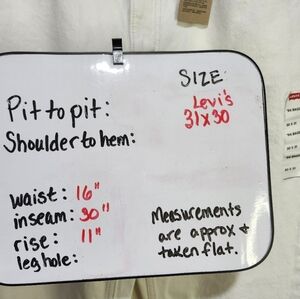 SIZE:
Levi's
31x30
Pit to pit:
Shoulder to hem:
waist: 16"
inseam: 30"
rise: 11"
leghole:
Measurements
are approx +
taken flat.